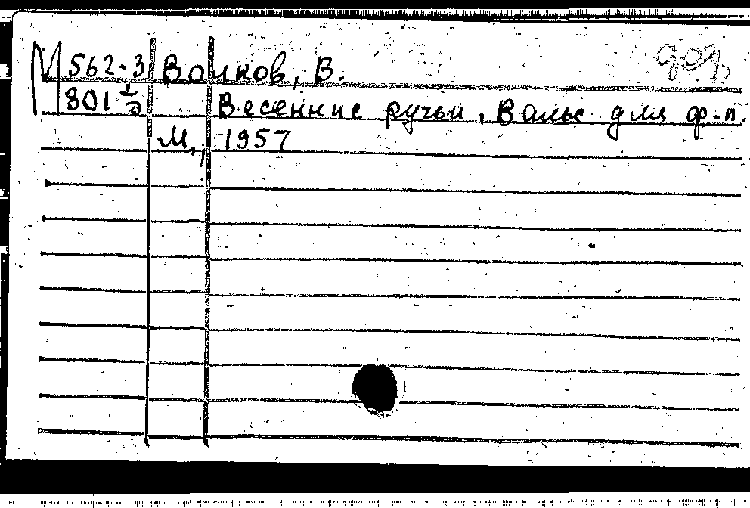 М 562-3 Волков, В.
801 Весенние ручьи, Вальс для ф-п.
М., 1957